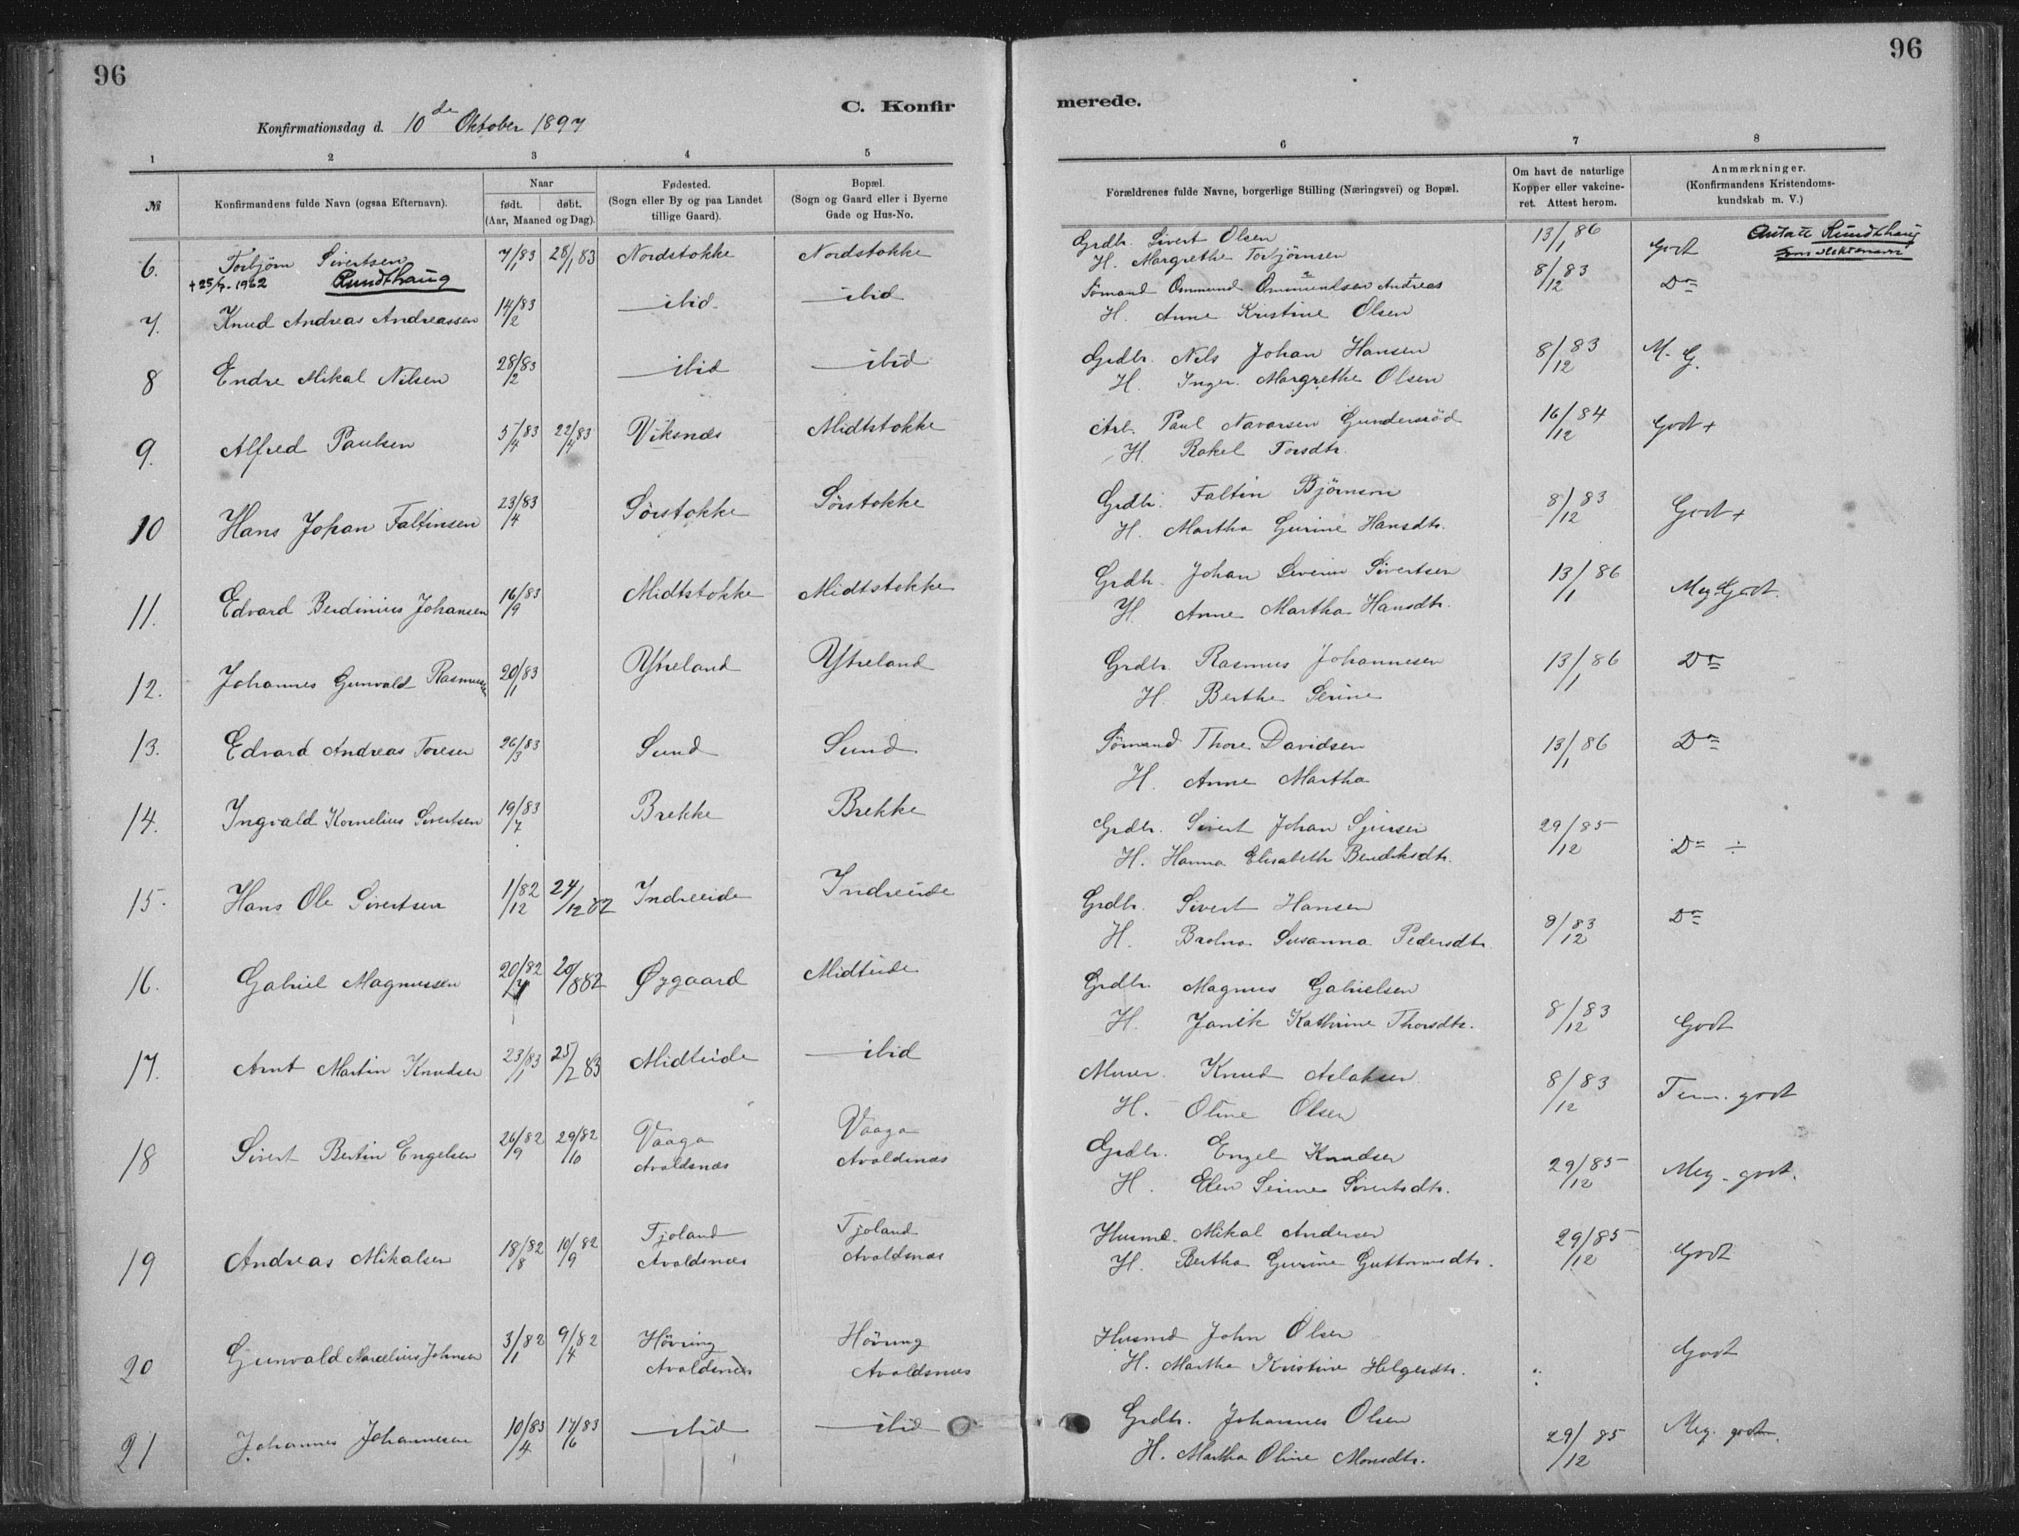 96
96
C. Konfir
merede.
Konfirmationsdag d. 10de Oktober 1897
1 2 3 4 5 6 7 8
№
Konfirmandens fulde Navn (ogsaa Efternavn).
Naar
født. døbt.
(Aar, Maaned og Dag).
Fødested.
(Sogn eller By og paa Landet
tillige Gaard).
Bopæl.
(Sogn og Gaard eller i Byerne
Gade og Hus-No.
Forældrenes fulde Navne, borgerlige Stilling (Næringsvei) og Bopæl.
Om havt de naturlige
Kopper eller vakcine-
ret. Attest herom.
Anmærkninger.
(Konfirmandens Kristendoms-
kundskab m. V.)
6. Torbjørn Sivertsen 7/1 83 28/1 83 Nordstokke Nordstokke Grdbr. Sivert Olsen 13/1 86 Godt Antatt Rundthaug
+25/7-1962 Rundthaug H. Margrethe Torbjørnsen som slektsnavn
7. Knud Andreas Andreassen 14/2 83 ibid ibid Sømand Ommund Ommundsen Andreas 8/12 83 Do
H. Anne Kristine Olsen
8 Endre Mikal Nilsen 28/2 83 ibid ibid Grdbr. Nils Johan Hansen 8/12 83 M. G.
H. Inger Margrethe Olsen
9. Alfred Paulsen 5/4 83 22/4 83 Viksnæs Midtstokke Arb. Paul Navarsen Gundersrød 16/12 84 Godt+
H. Rakel Torsdtr.
10 Hans Johan Faltinsen 23/4 83 Sørstokke Sørstokke Grdbr. Faltin Bjørnsen 8/12 83 Godt+
H. Martha Gurine Hansdtr.
11. Edvard Berdinius Johansen 16/9 83 Midtstokke Midtstokke Grdbr. Johan Severin Sivertsen 13/1 86 Meg. Godt.
H. Anne Martha Hansdtr.
12. Johannes Gunvald Rasmussen 20/1 83 Ytreland Ytreland Grdbr. Rasmus Johannesen 13/1 86 Do
H. Berthe Serine
13. Edvard Andreas Toresen 26/3 83 Sund Sund Sømand Thore Davidsen 13/1 86 Do
H. Anne Martha
14. Ingvald Kornelius Sivertsen 19/7 83 Brekke Brekke Grdbr. Sivert Johan Sjursen 29/12 85 Do ÷
H. Hanna Elisabeth Bendiksdtr.
15. Hans Ole Sivertsen 1/12 82 24/12 82 Indreeide Indreeide Grdbr. Sivert Hansen 9/12 83 Do
H. Susanna Pedersdtr.
16. Gabriel Magnussen 20/7 82 20/8 82 Øygaard Midteide Grdbr. Magnus Gabrielsen 8/12 83 Godt
H. Janik Kathrine Thorsdtr.
17. Arnt Martin Knudsen 23/1 83 25/2 83 Midteide ibid Murer. Knud Aslaksen 8/12 83 Tem. godt
H. Oline Olsen
18 Sivert Bertin Engelsen 26/9 82 29/10 82 Vaaga Avaldsnæs Vaaga Avaldsnæs Grdbr. Engel Knudsen 29/12 85 Meg. godt.
H. Elen Serine Sivertsdtr.
19 Andreas Mikalsen 18/8 82 10/9 82 Tjoland Avaldsnæs Tjoland Avaldsnæs Husmd. Mikal Andersen 29/12 85 Godt
H. Bertha Gurine Guttormsdtr.
20 Gunvald Marcelius Johnsen 3/1 82 9/4 82 Høvring Avaldsnæs Høvring Avaldsnæs Husmd John Olsen Godt
H. Martha Kristine Helgesdtr.
21 Johannes Johannesen 10/4 83 17/6 83 ibid ibid Grdbr. Johannes Olsen 29/12 85 Meg. godt.
H. Martha Oline Monsdtr.